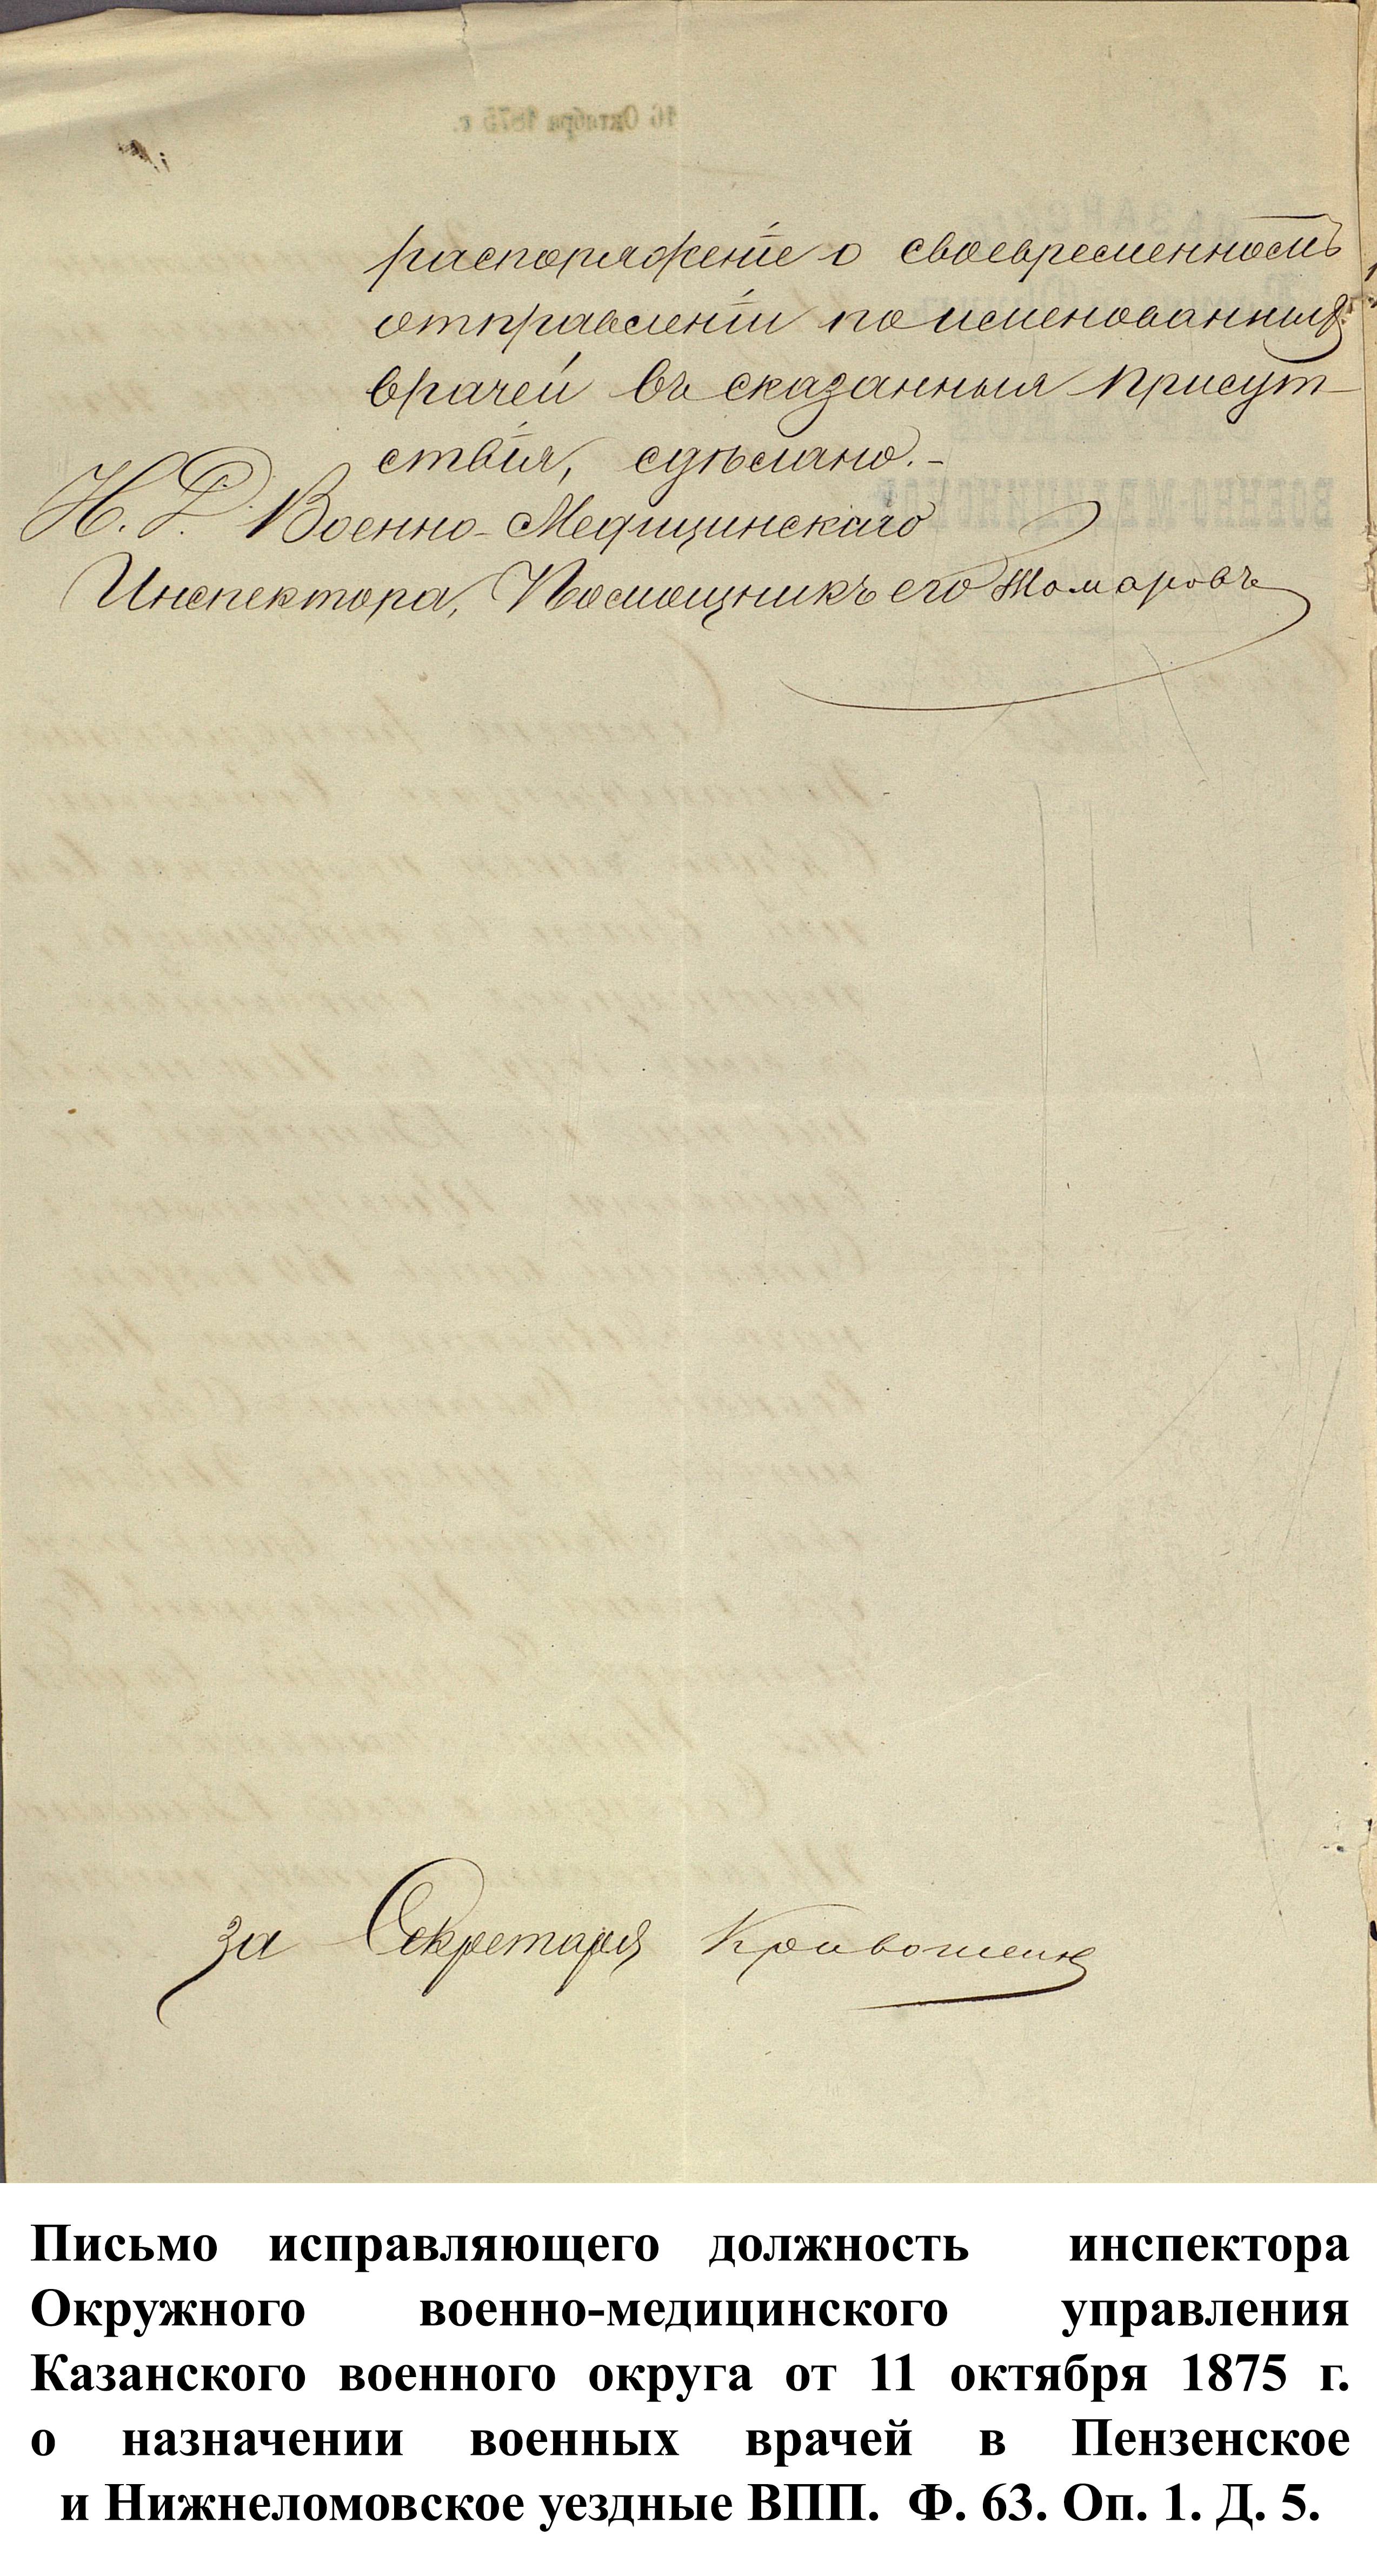 16 Октября 1875 г.
распоряженіе о своевременномъ
отправленіи поименованныхъ
врачей въ сказанныя присут-
ствія, сдѣлано.-
И. Д. Военно-Медицинскаго
Инспектора, Помощникъ его Комаровъ
за Секретаря
Письмо исправляющего должность инспектора
Окружного военно-медицинского управления
Казанского военного округа от 11 октября 1875 г.
о назначении военных врачей в Пензенское
и Нижнеломовское уездные ВПП. Ф. 63. Оп. 1. Д. 5.